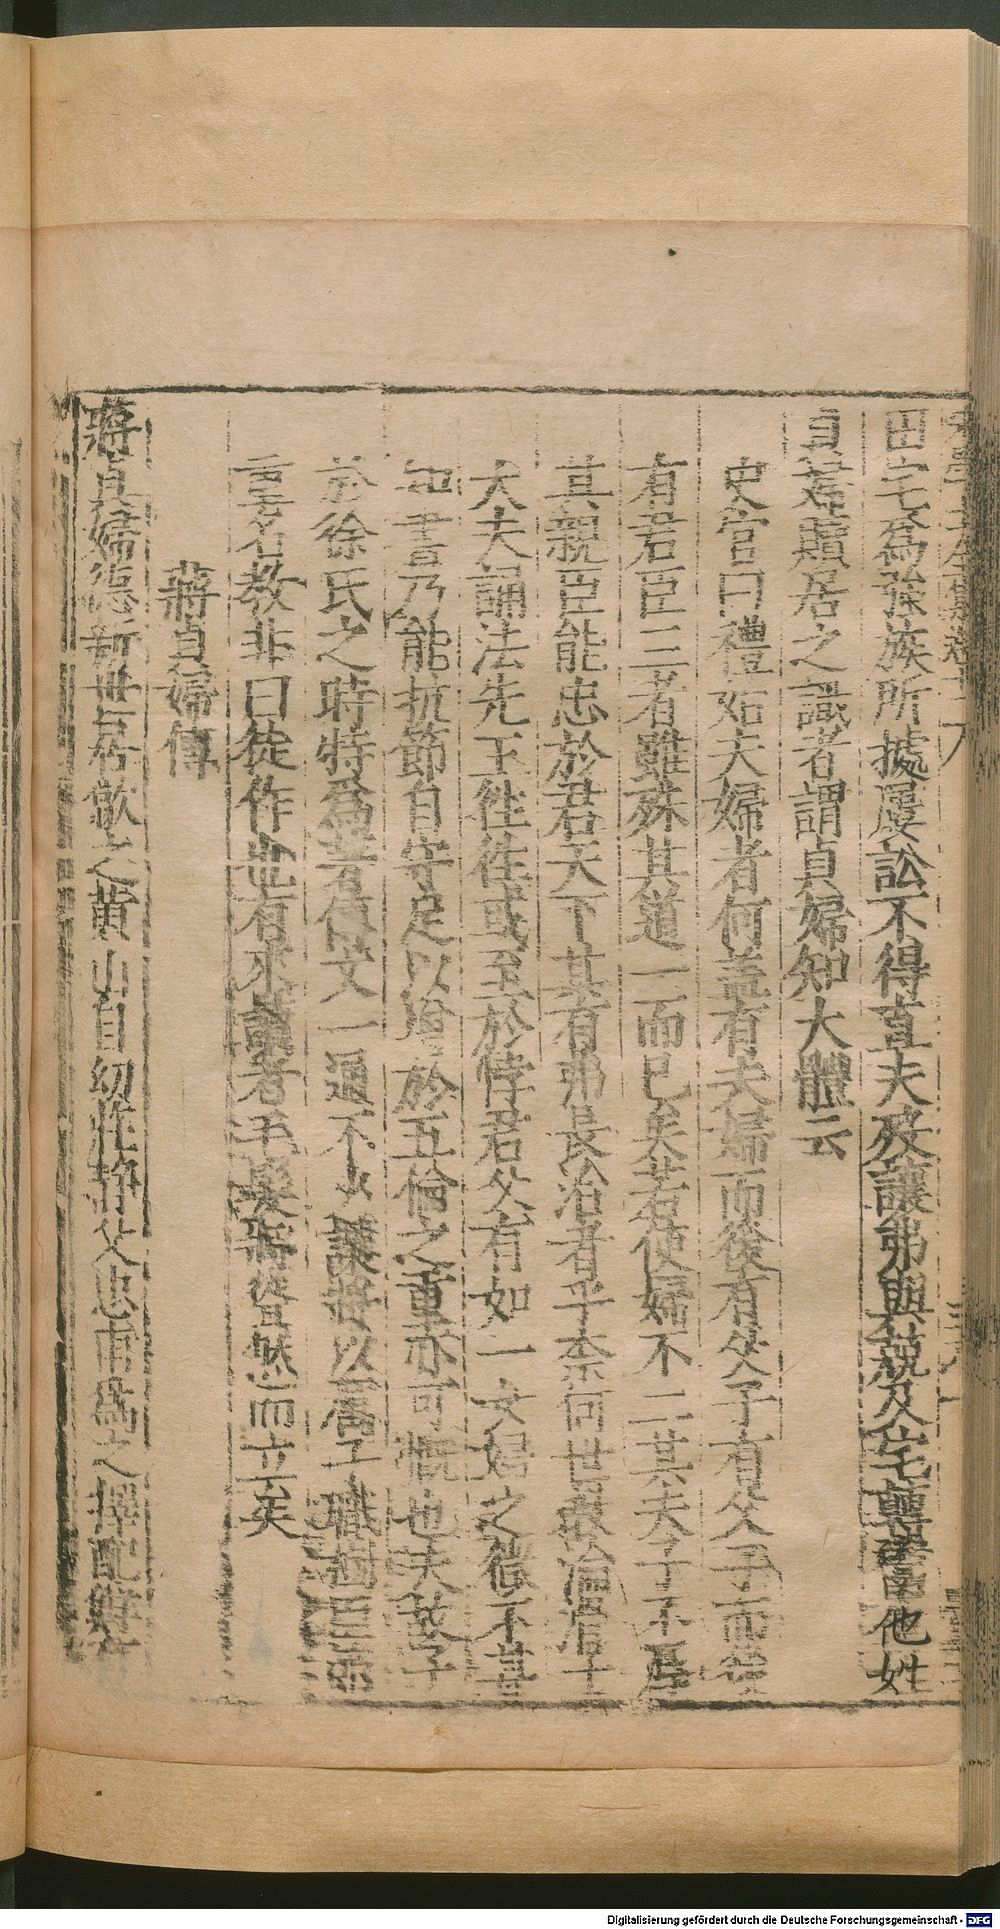 田宅爲強族所據屢訟不得直夫及讓弟與親及宅轉鬻他姓
貞婦贖居之識者謂貞婦知大體云
史官曰禮始夫婦者何蓋有夫婦而後有父子有父子而後
有君臣三者雖殊其道一而已矣若使婦不二其夫子不
其親臣能忠於君天下其有弗長治者乎奈何世敎淪胥士
大夫誦法先王徃徃或至於悖君父有如一女婦之微不甚
知書乃能抗節自守足以增於五倫之重亦可慨也夫故予
於徐氏之時特爲著傳文一通不少讓將以舊工職
言名教非曰徒作也有來讀者毛髮將皆悚而立矣
蔣貞婦傳
蔣貞婦德新世居歙之黄山自幼性静父忠甫爲之擇配
Digitalisierung gefördert durch die Deutsche Forschungsgemeinschaft - DFG